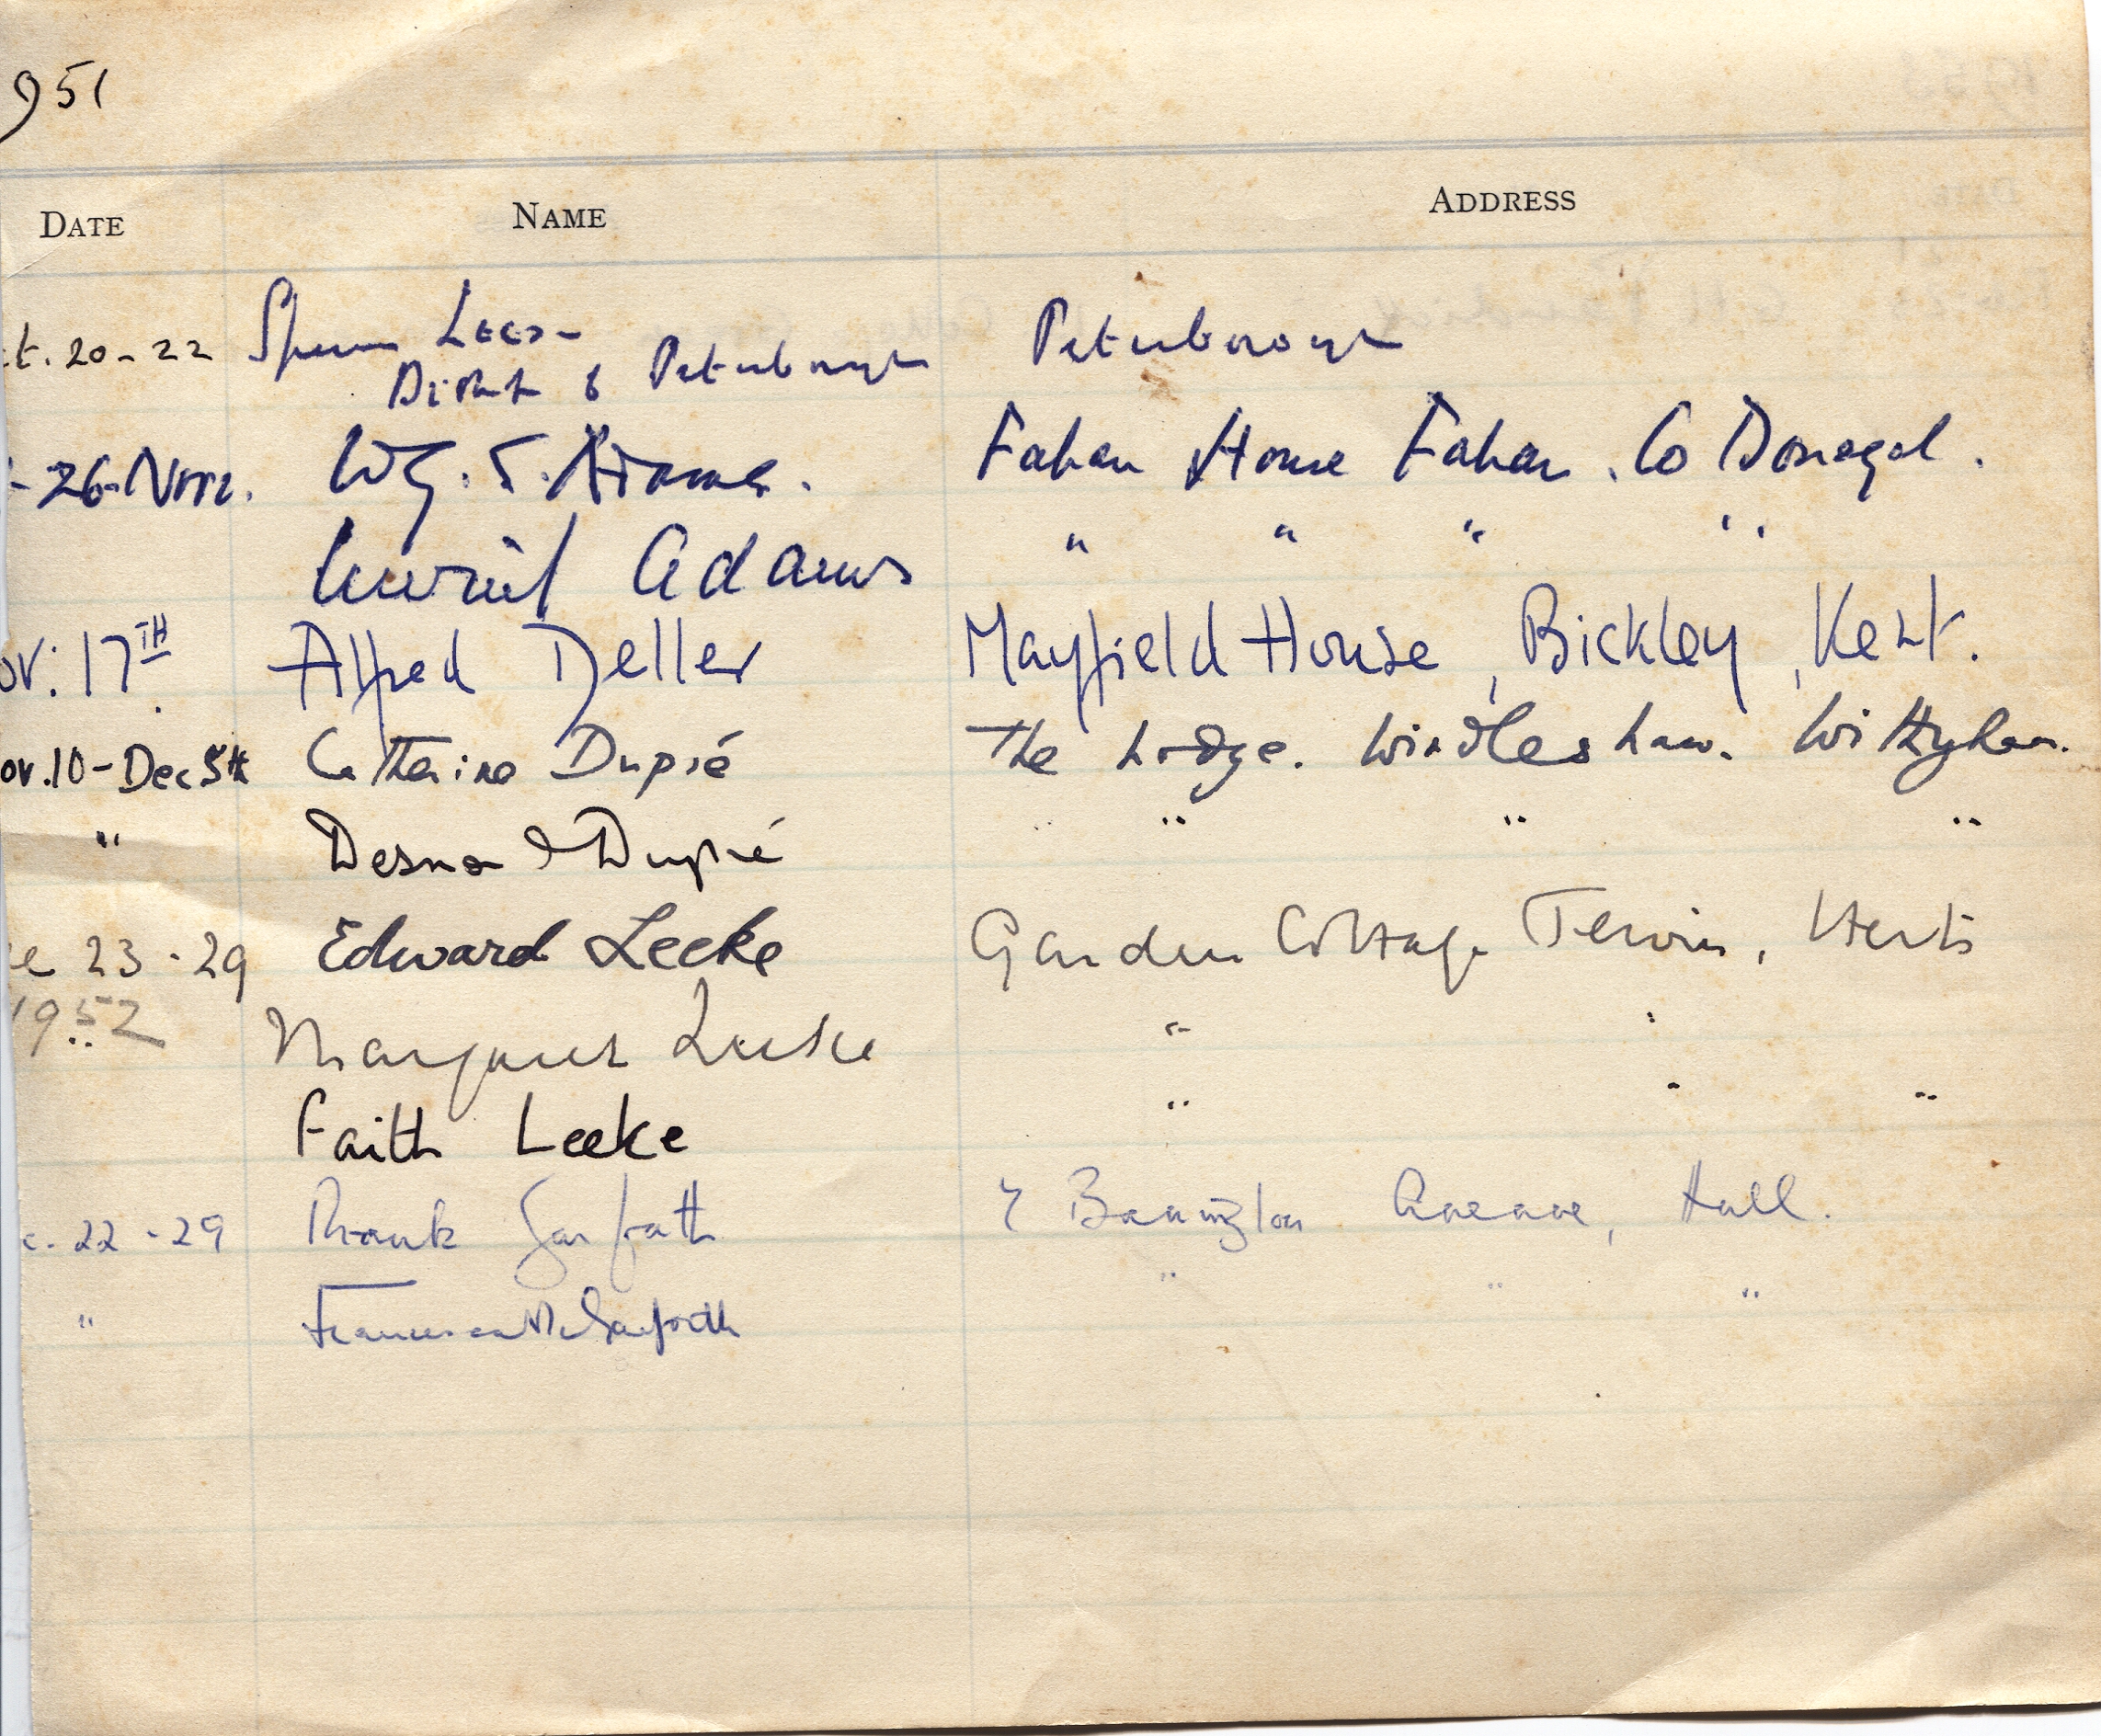 951
DATE NAME ADDRESS
ct. 20-22 Spencer Lees- Peterborough
Bishop of Peterborough
-26-Nov. W.G.S. Adams. Fahan House Fahan. Co Donegal.
Muriel Adams " " " "
ov: 17TH Alfred Deller Mayfield House, Bickley, Kent.
ov. 10-Dec 5th Catherine Dupré The Lodge. Windleshaw. Withyham.
" Desmond Dupré " " "
ec 23-29 Edward Leeke Garden Cottage Tewin, Herts
1952 Margaret Leeke " "
Faith Leeke " " "
c. 22-29 Frank Garforth Avenue, Hull.
" Garforth " " "